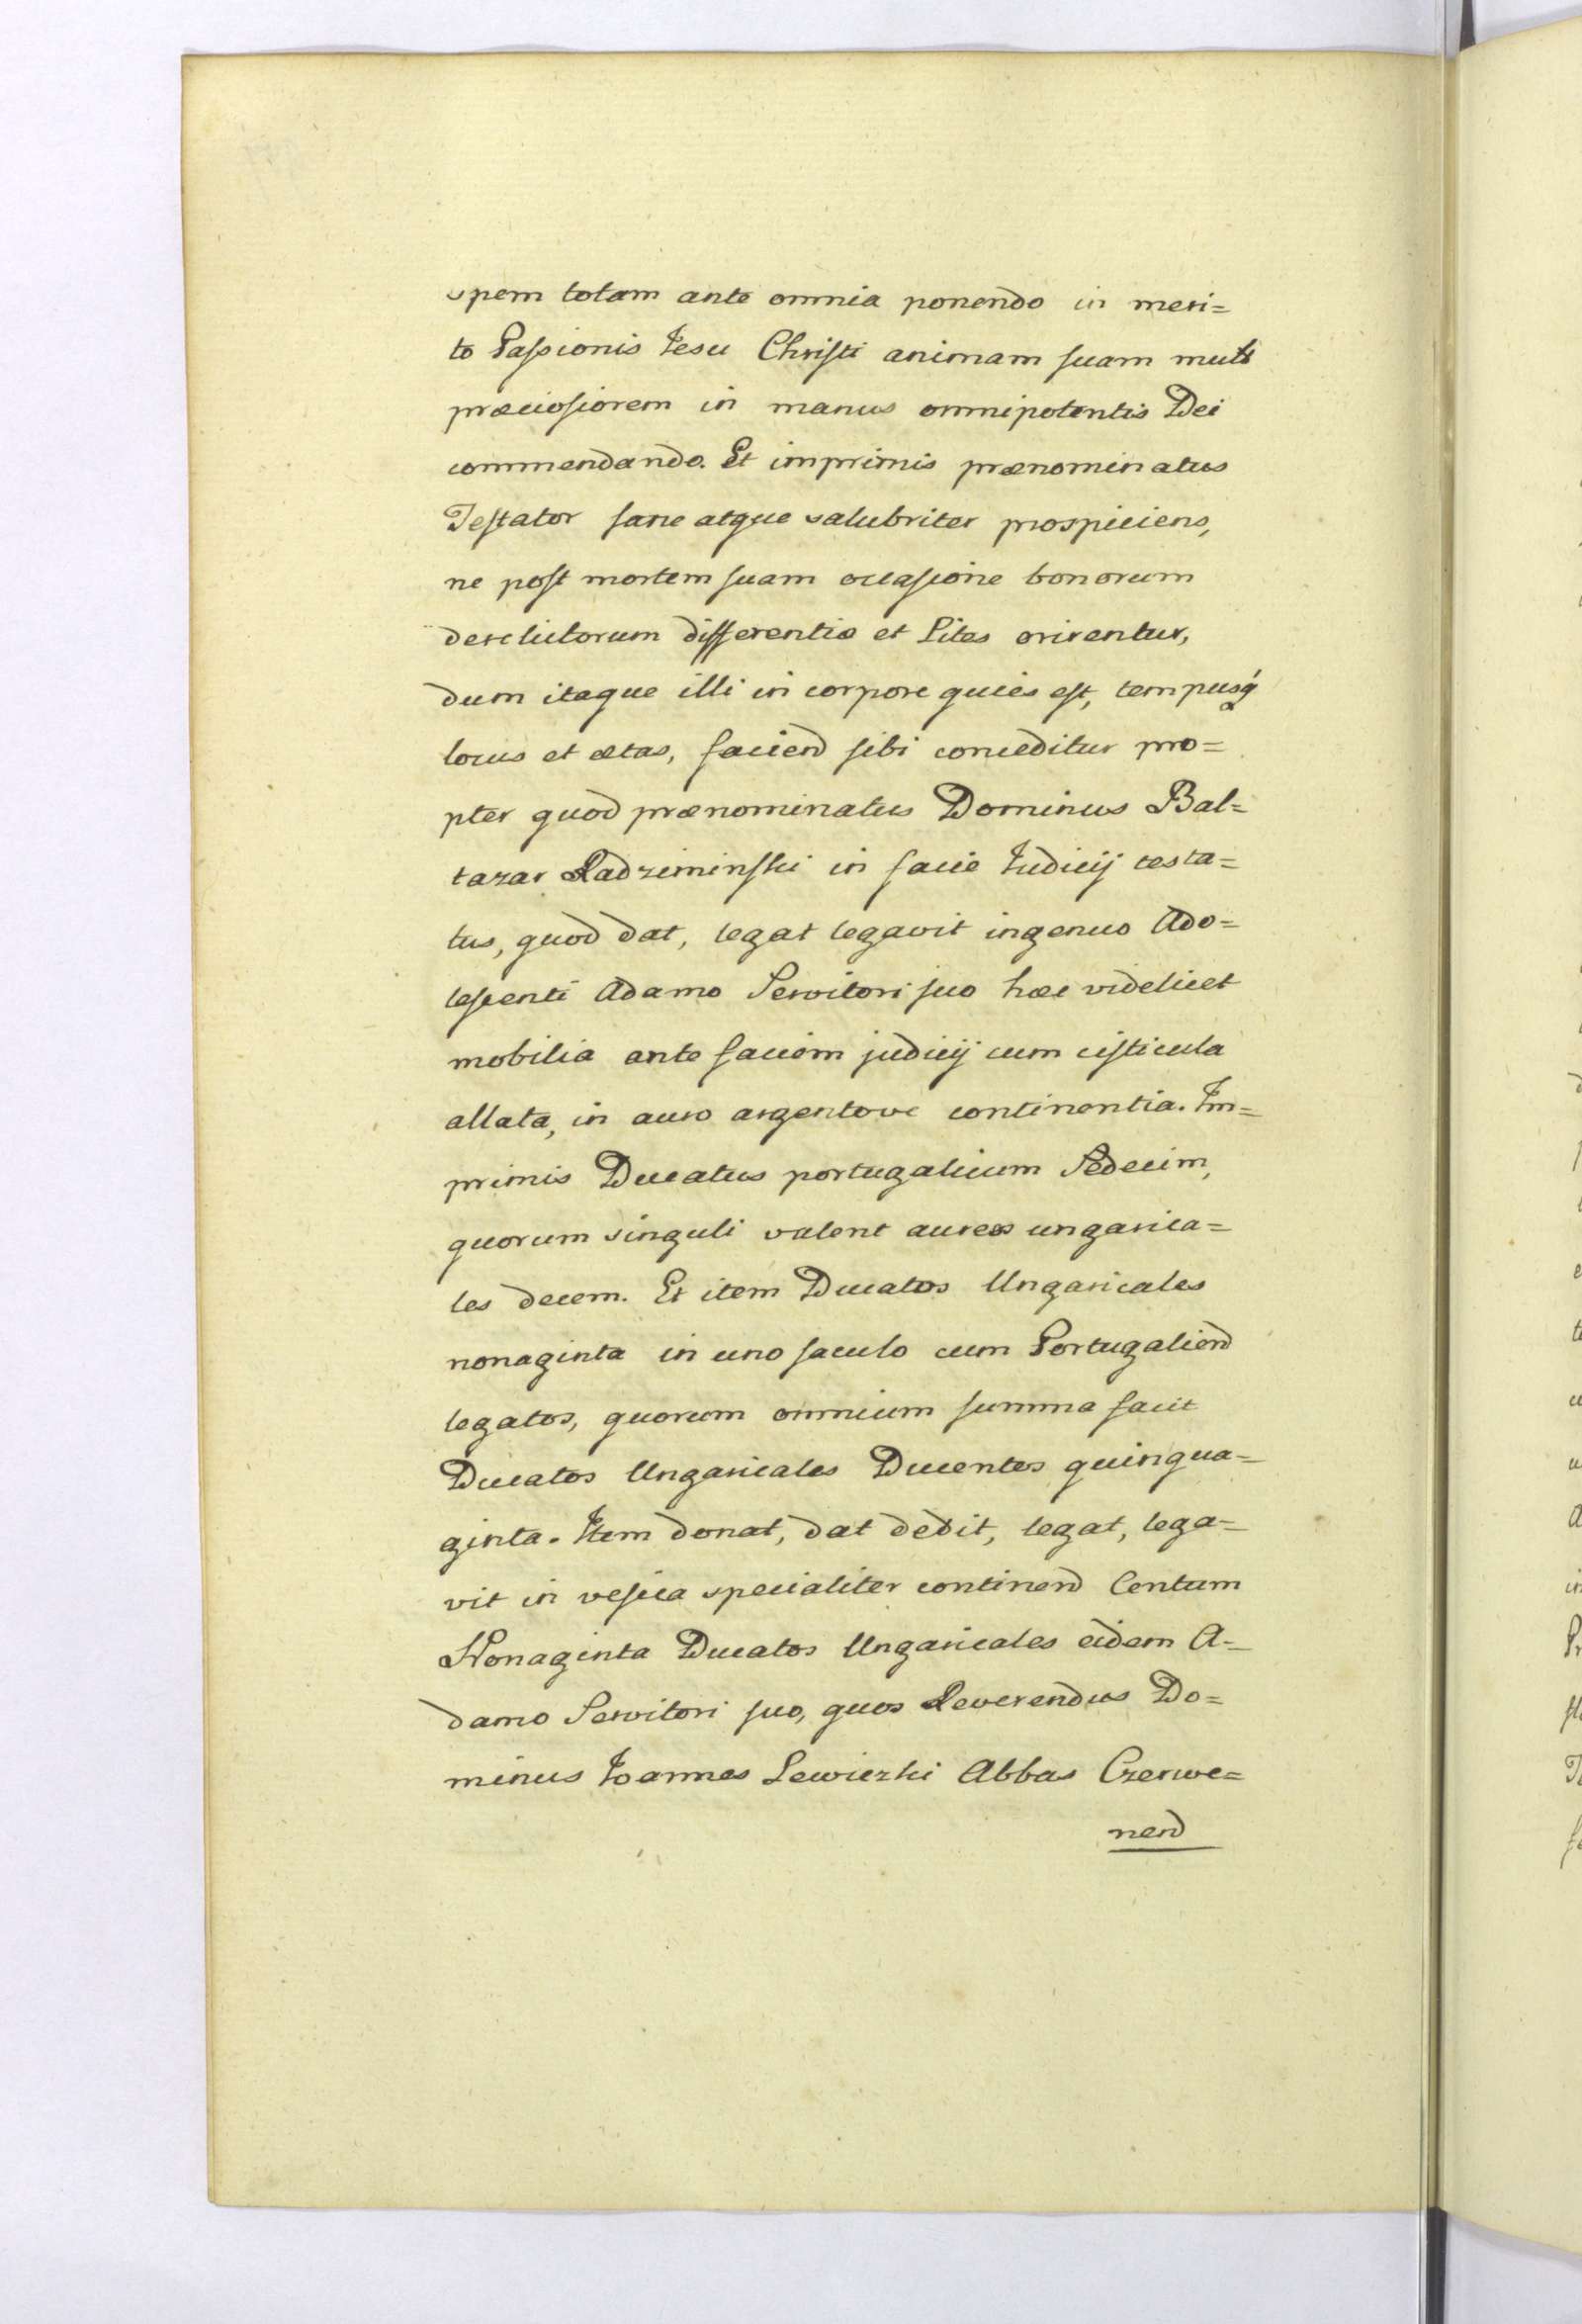 spem totam ante omnia ponendo in meri=
to Passionis Jesu Christi animam suam multo
præciosiorem in manus omnipotentis Dei
commendando. Et imprimis prænominatus
Testator sane atque salubriter prospiciens,
ne post mortem suam occasione bonorum
derelictorum differentiæ et Lites orirentur,
dum itaque illi in corpore quies est, tempusq
locus et ætas, faciend sibi conceditur pro=
pter quod prænominatus Dominus Bal=
tazar Radziminski in facie Judicij testa=
tus, quod dat, legat legavit ingenuo Ado=
lescenti Adamo Servitori suo hæc videlicet
mobilia ante faciem judicij cum cisticula
allata, in auro argentove continentia. Im=
primis Ducatus portugalicum Sedecim,
quorum singuli valent aureos ungarica=
les decem. Et item Ducatos Ungaricales
nonaginta in uno saculo cum Portugaliend
legatos, quorum omnium summa facit
Ducatos Ungaricales Ducentos quinqua=
ginta. Item donat, dat dedit, legat, lega=
vit in vesica specialiter continend Centum
Nonaginta Ducatos Ungaricales eidem A=
damo Servitori suo, quos Reverendus Do=
minus Joannes Lewiczki Abbas Czerwe=
nend